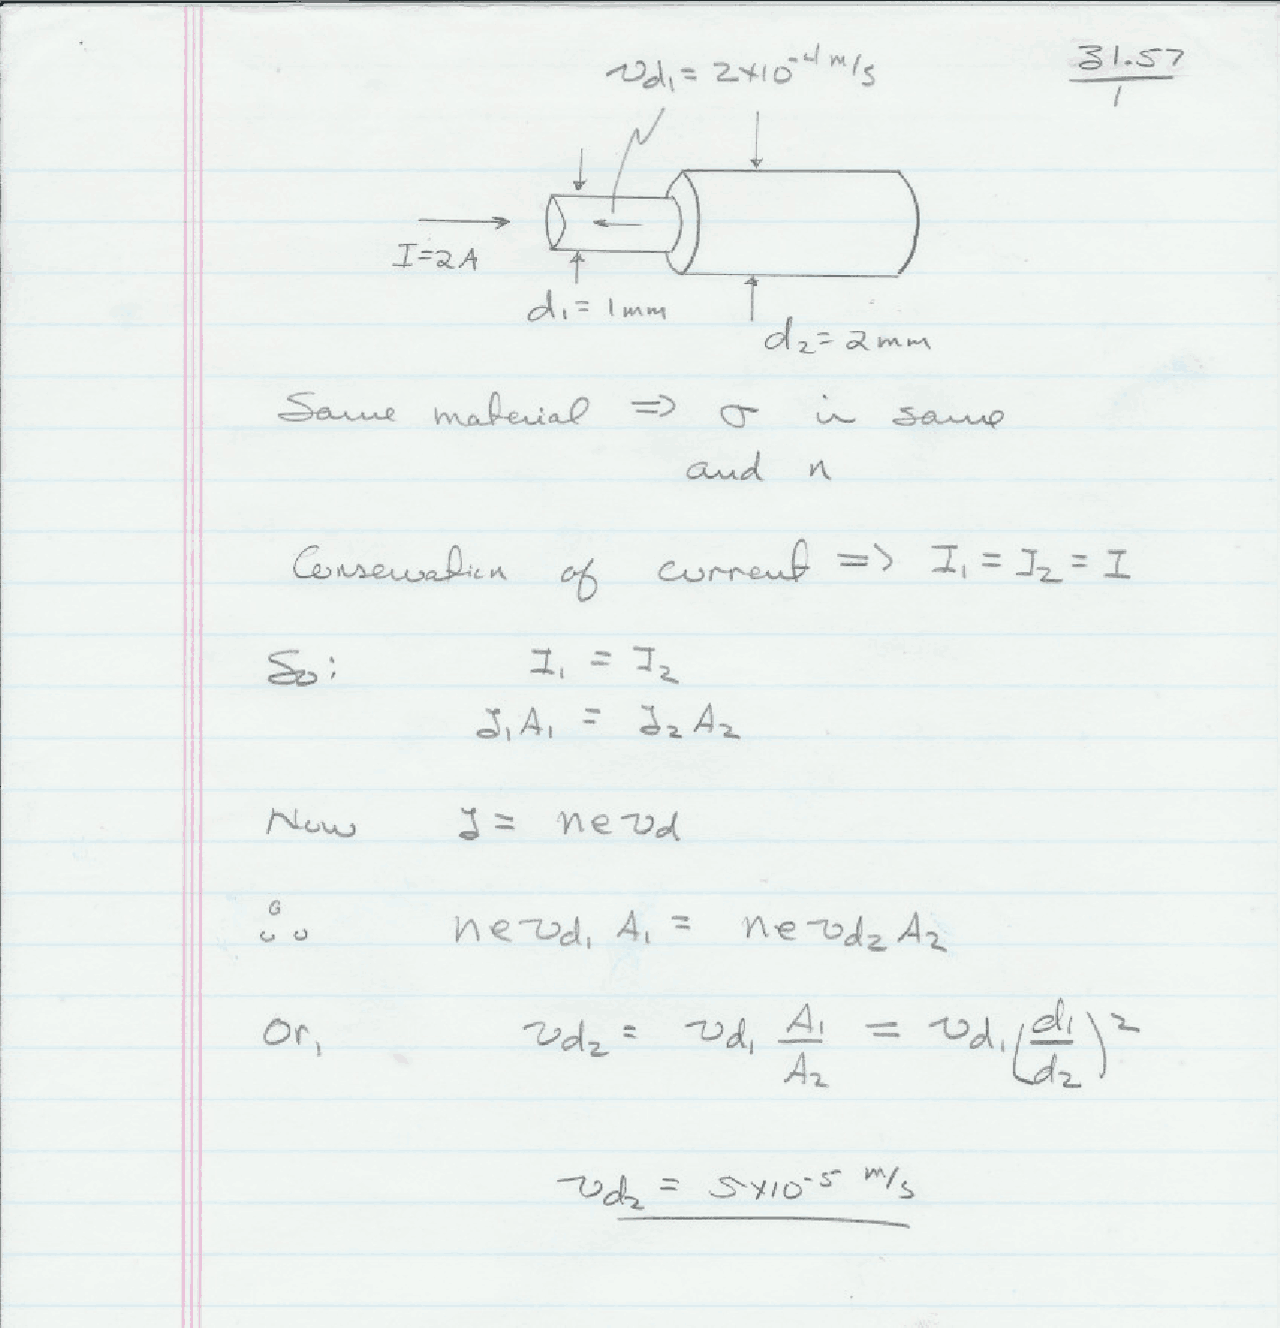 31.57
1
vd₁ = 2×10⁻⁴ m/s
I=2A
d₁ = 1mm
d₂ = 2mm
Same material => σ is same
and n
Conservation of current => I₁ = I₂ = I
So: I₁ = I₂
J₁A₁ = J₂A₂
Now J = nevd
∴ nevd₁ A₁ = nevd₂ A₂
Or, vd₂ = vd₁ A₁/A₂ = vd₁ (d₁/d₂)²
vd₂ = 5×10⁻⁵ m/s